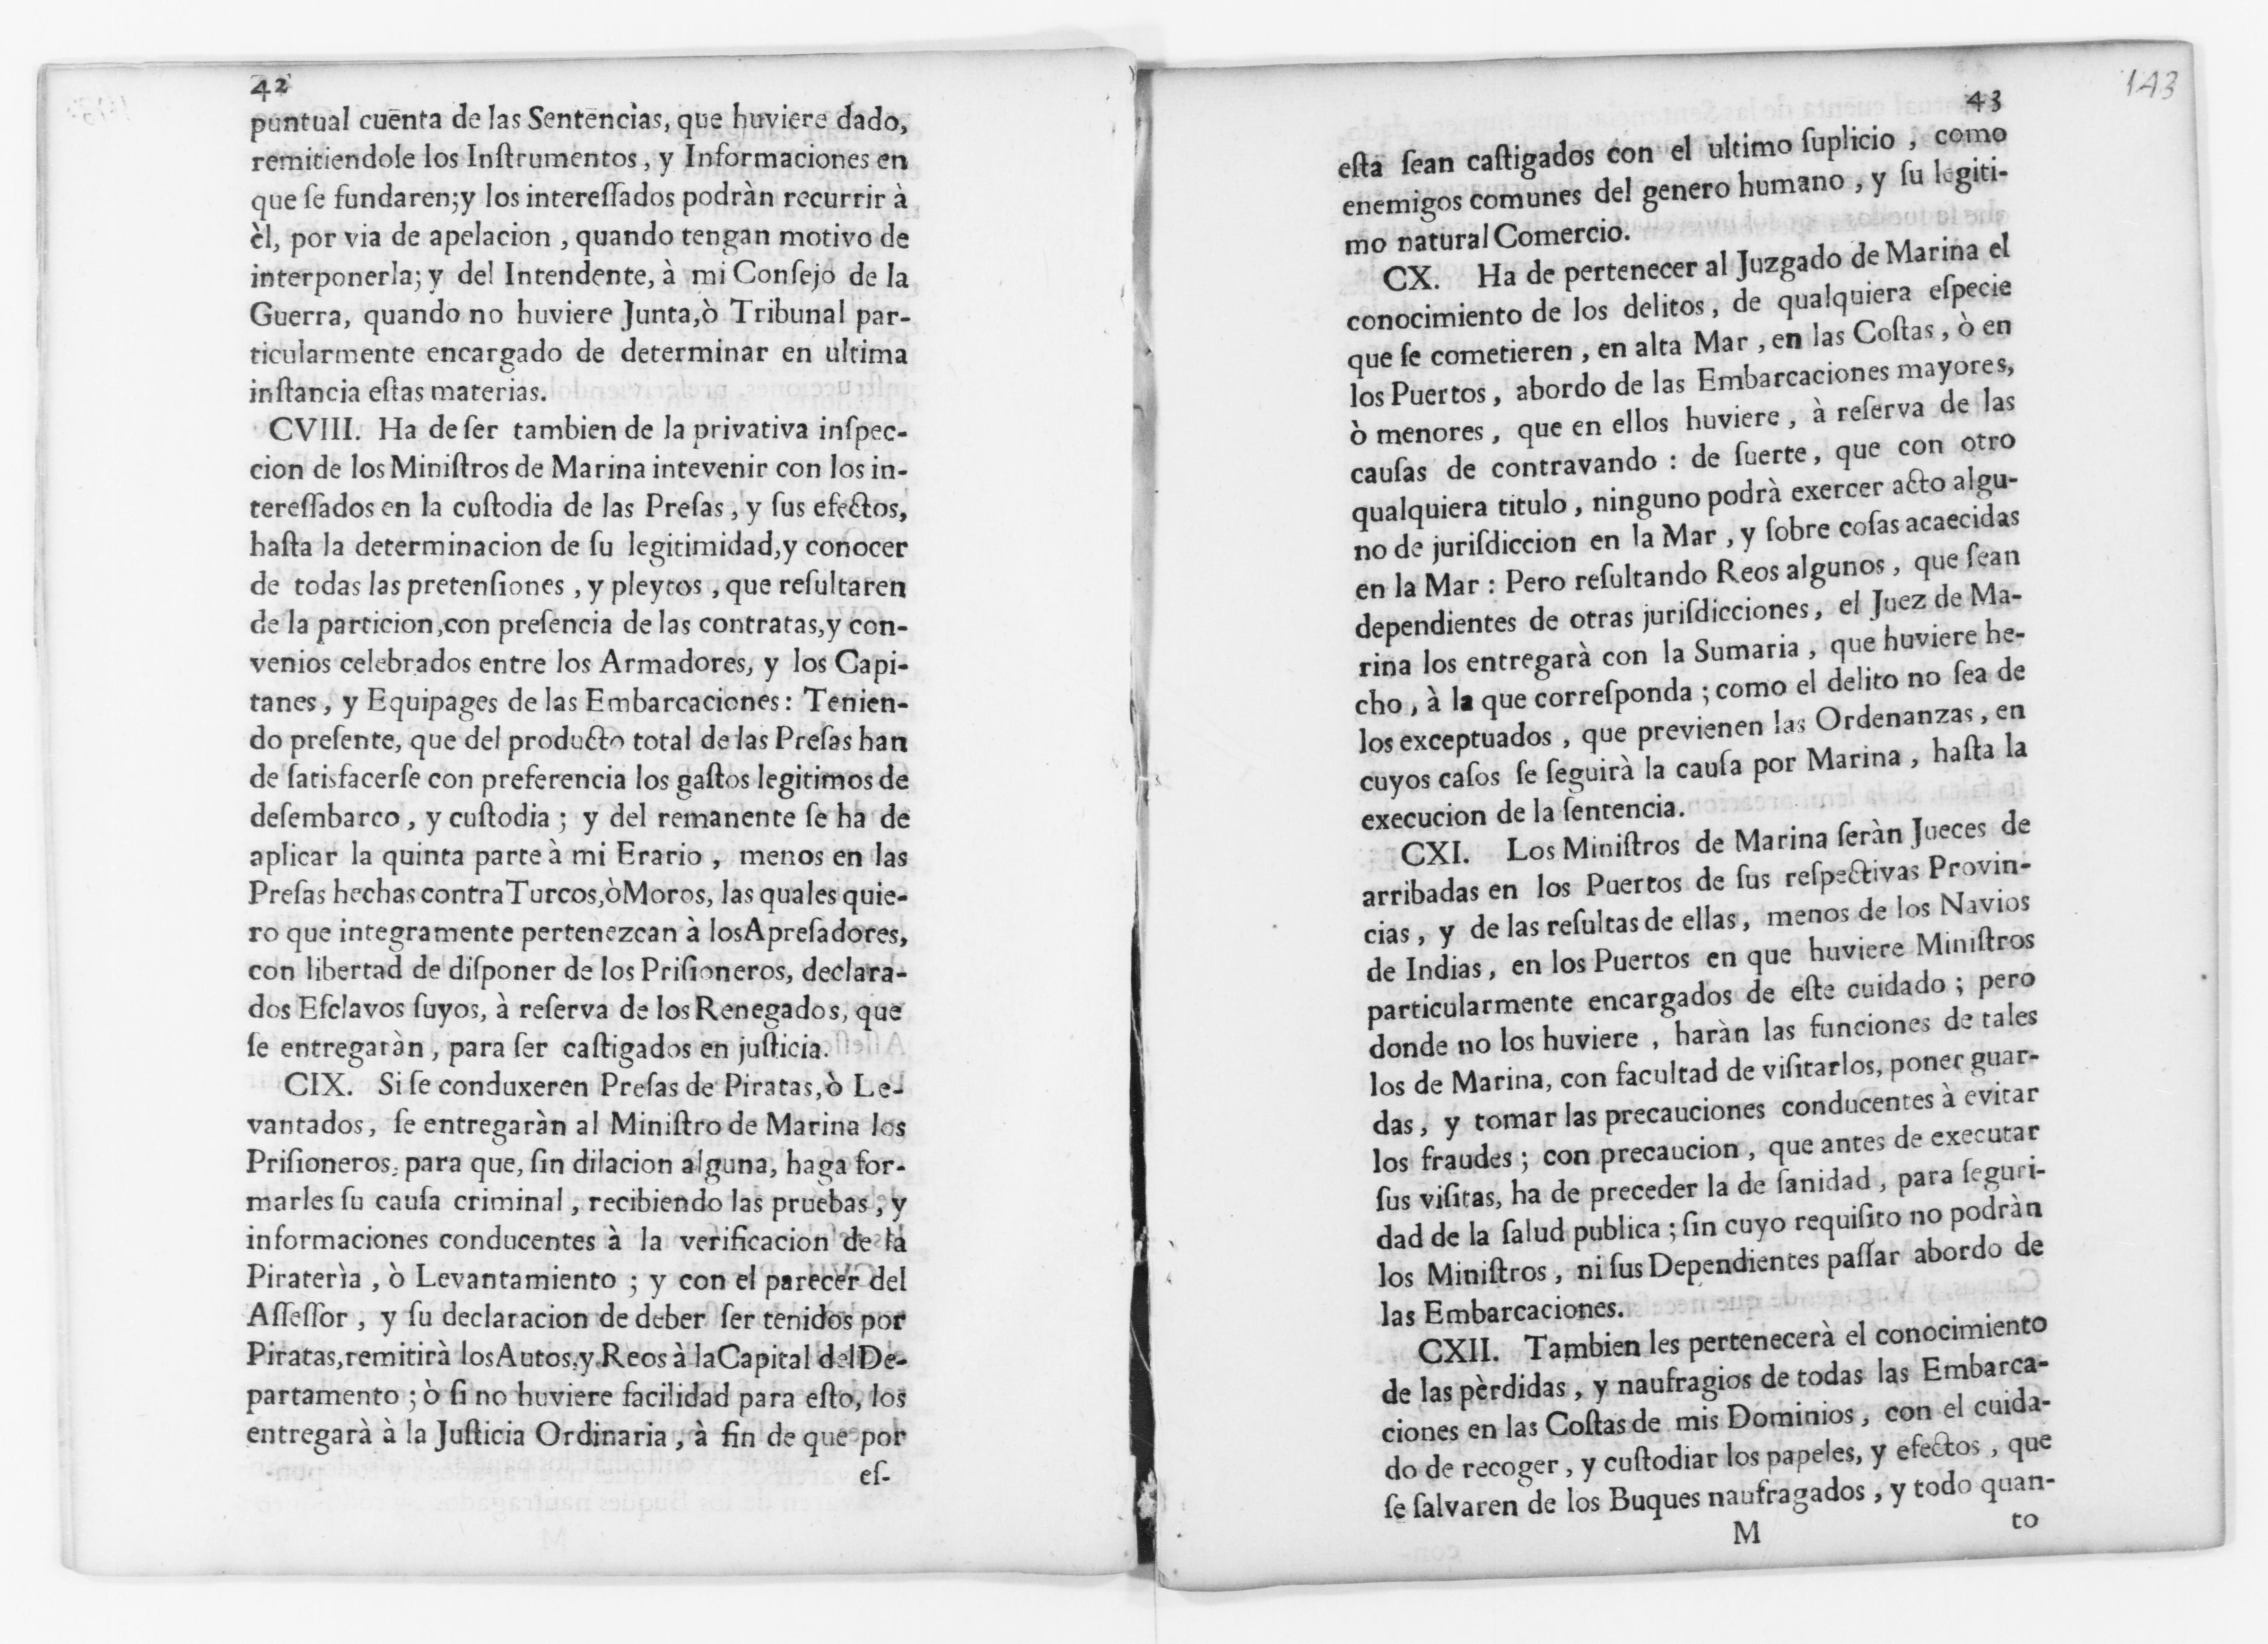 42
puntual cuēnta de las Sentēncìas, que huviere dado,
remitiendole los Inſtrumentos, y Informaciones en
que ſe fundaren; y los intereſſados podràn recurrir à
èl, por via de apelacion, quando tengan motivo de
interponerla; y del Intendente, à mi Conſejo de la
Guerra, quando no huviere Junta, ò Tribunal par-
ticularmente encargado de determinar en ultima
inſtancia eſtas materias.
CVIII. Ha de ſer tambien de la privativa inſpec-
cion de los Miniſtros de Marina intevenir con los in-
tereſſados en la cuſtodia de las Preſas, y ſus efectos,
haſta la determinacion de ſu legitimidad, y conocer
de todas las pretenſiones, y pleytos, que reſultaren
de la particion, con preſencia de las contratas, y con-
venios celebrados entre los Armadores, y los Capi-
tanes, y Equipages de las Embarcaciones: Tenien-
do preſente, que del producto total de las Preſas han
de ſatisfacerſe con preferencia los gaſtos legitimos de
deſembarco, y cuſtodia; y del remanente ſe ha de
aplicar la quinta parte à mi Erario, menos en las
Preſas hechas contra Turcos, ò Moros, las quales quie-
ro que integramente pertenezcan à los Apreſadores,
con libertad de diſponer de los Priſioneros, declara-
dos Eſclavos ſuyos, à reſerva de los Renegados, que
ſe entregaràn, para ſer caſtigados en juſticia.
CIX. Si ſe conduxeren Preſas de Piratas, ò Le-
vantados, ſe entregaràn al Miniſtro de Marina los
Priſioneros, para que, ſin dilacion alguna, haga for-
marles ſu cauſa criminal, recibiendo las pruebas, y
informaciones conducentes à la verificacion de la
Piraterìa, ò Levantamiento; y con el parecer del
Aſſeſſor, y ſu declaracion de deber ſer tenidos por
Piratas, remitirà los Autos, y Reos à la Capital del De-
partamento; ò ſi no huviere facilidad para eſto, los
entregarà à la Juſticia Ordinaria, à fin de que por
eſ-
143
43
eſta ſean caſtigados con el ultimo ſuplicio, como
enemigos comunes del genero humano, y ſu legiti-
mo natural Comercio.
CX. Ha de pertenecer al Juzgado de Marina el
conocimiento de los delitos, de qualquiera eſpecie
que ſe cometieren, en alta Mar, en las Coſtas, ò en
los Puertos, abordo de las Embarcaciones mayores,
ò menores, que en ellos huviere, à reſerva de las
cauſas de contravando: de ſuerte, que con otro
qualquiera titulo, ninguno podrà exercer acto algu-
no de juriſdiccion en la Mar, y ſobre coſas acaecidas
en la Mar: Pero reſultando Reos algunos, que ſean
dependientes de otras juriſdicciones, el Juez de Ma-
rina los entregarà con la Sumaria, que huviere he-
cho, à la que correſponda; como el delito no ſea de
los exceptuados, que previenen las Ordenanzas, en
cuyos caſos ſe ſeguirà la cauſa por Marina, haſta la
execucion de la ſentencia.
CXI. Los Miniſtros de Marina ſeràn Jueces de
arribadas en los Puertos de ſus reſpectivas Provin-
cias, y de las reſultas de ellas, menos de los Navios
de Indias, en los Puertos en que huviere Miniſtros
particularmente encargados de eſte cuidado; pero
donde no los huviere, haràn las funciones de tales
los de Marina, con facultad de viſitarlos, poner guar-
das, y tomar las precauciones conducentes à evitar
los fraudes; con precaucion, que antes de executar
ſus viſitas, ha de preceder la de ſanidad, para ſeguri-
dad de la ſalud publica; ſin cuyo requiſito no podràn
los Miniſtros, ni ſus Dependientes paſſar abordo de
las Embarcaciones.
CXII. Tambien les pertenecerà el conocimiento
de las pèrdidas, y naufragios de todas las Embarca-
ciones en las Coſtas de mis Dominios, con el cuida-
do de recoger, y cuſtodiar los papeles, y efectos, que
ſe ſalvaren de los Buques naufragados, y todo quan-
M to